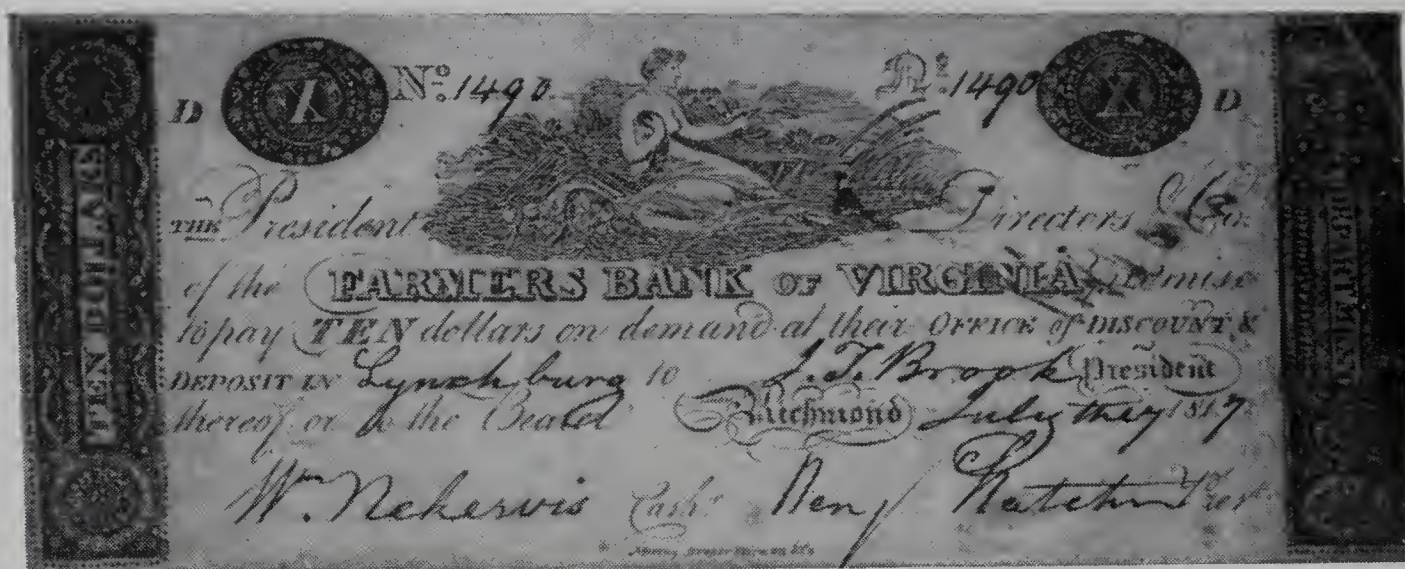 D X Nº. 1490 Nº. 1490 X D
TEN DOLLARS
THE President Directors & Co.
of the FARMERS BANK OF VIRGINIA promise
to pay TEN dollars on demand at their OFFICE of DISCOUNT &
DEPOSIT IN Lynchburg to J. T. Brook President
thereof or to the Bearer Richmond July the 7 1817
Wm. Nekervis Cashr. Benj Hatcher Prest.